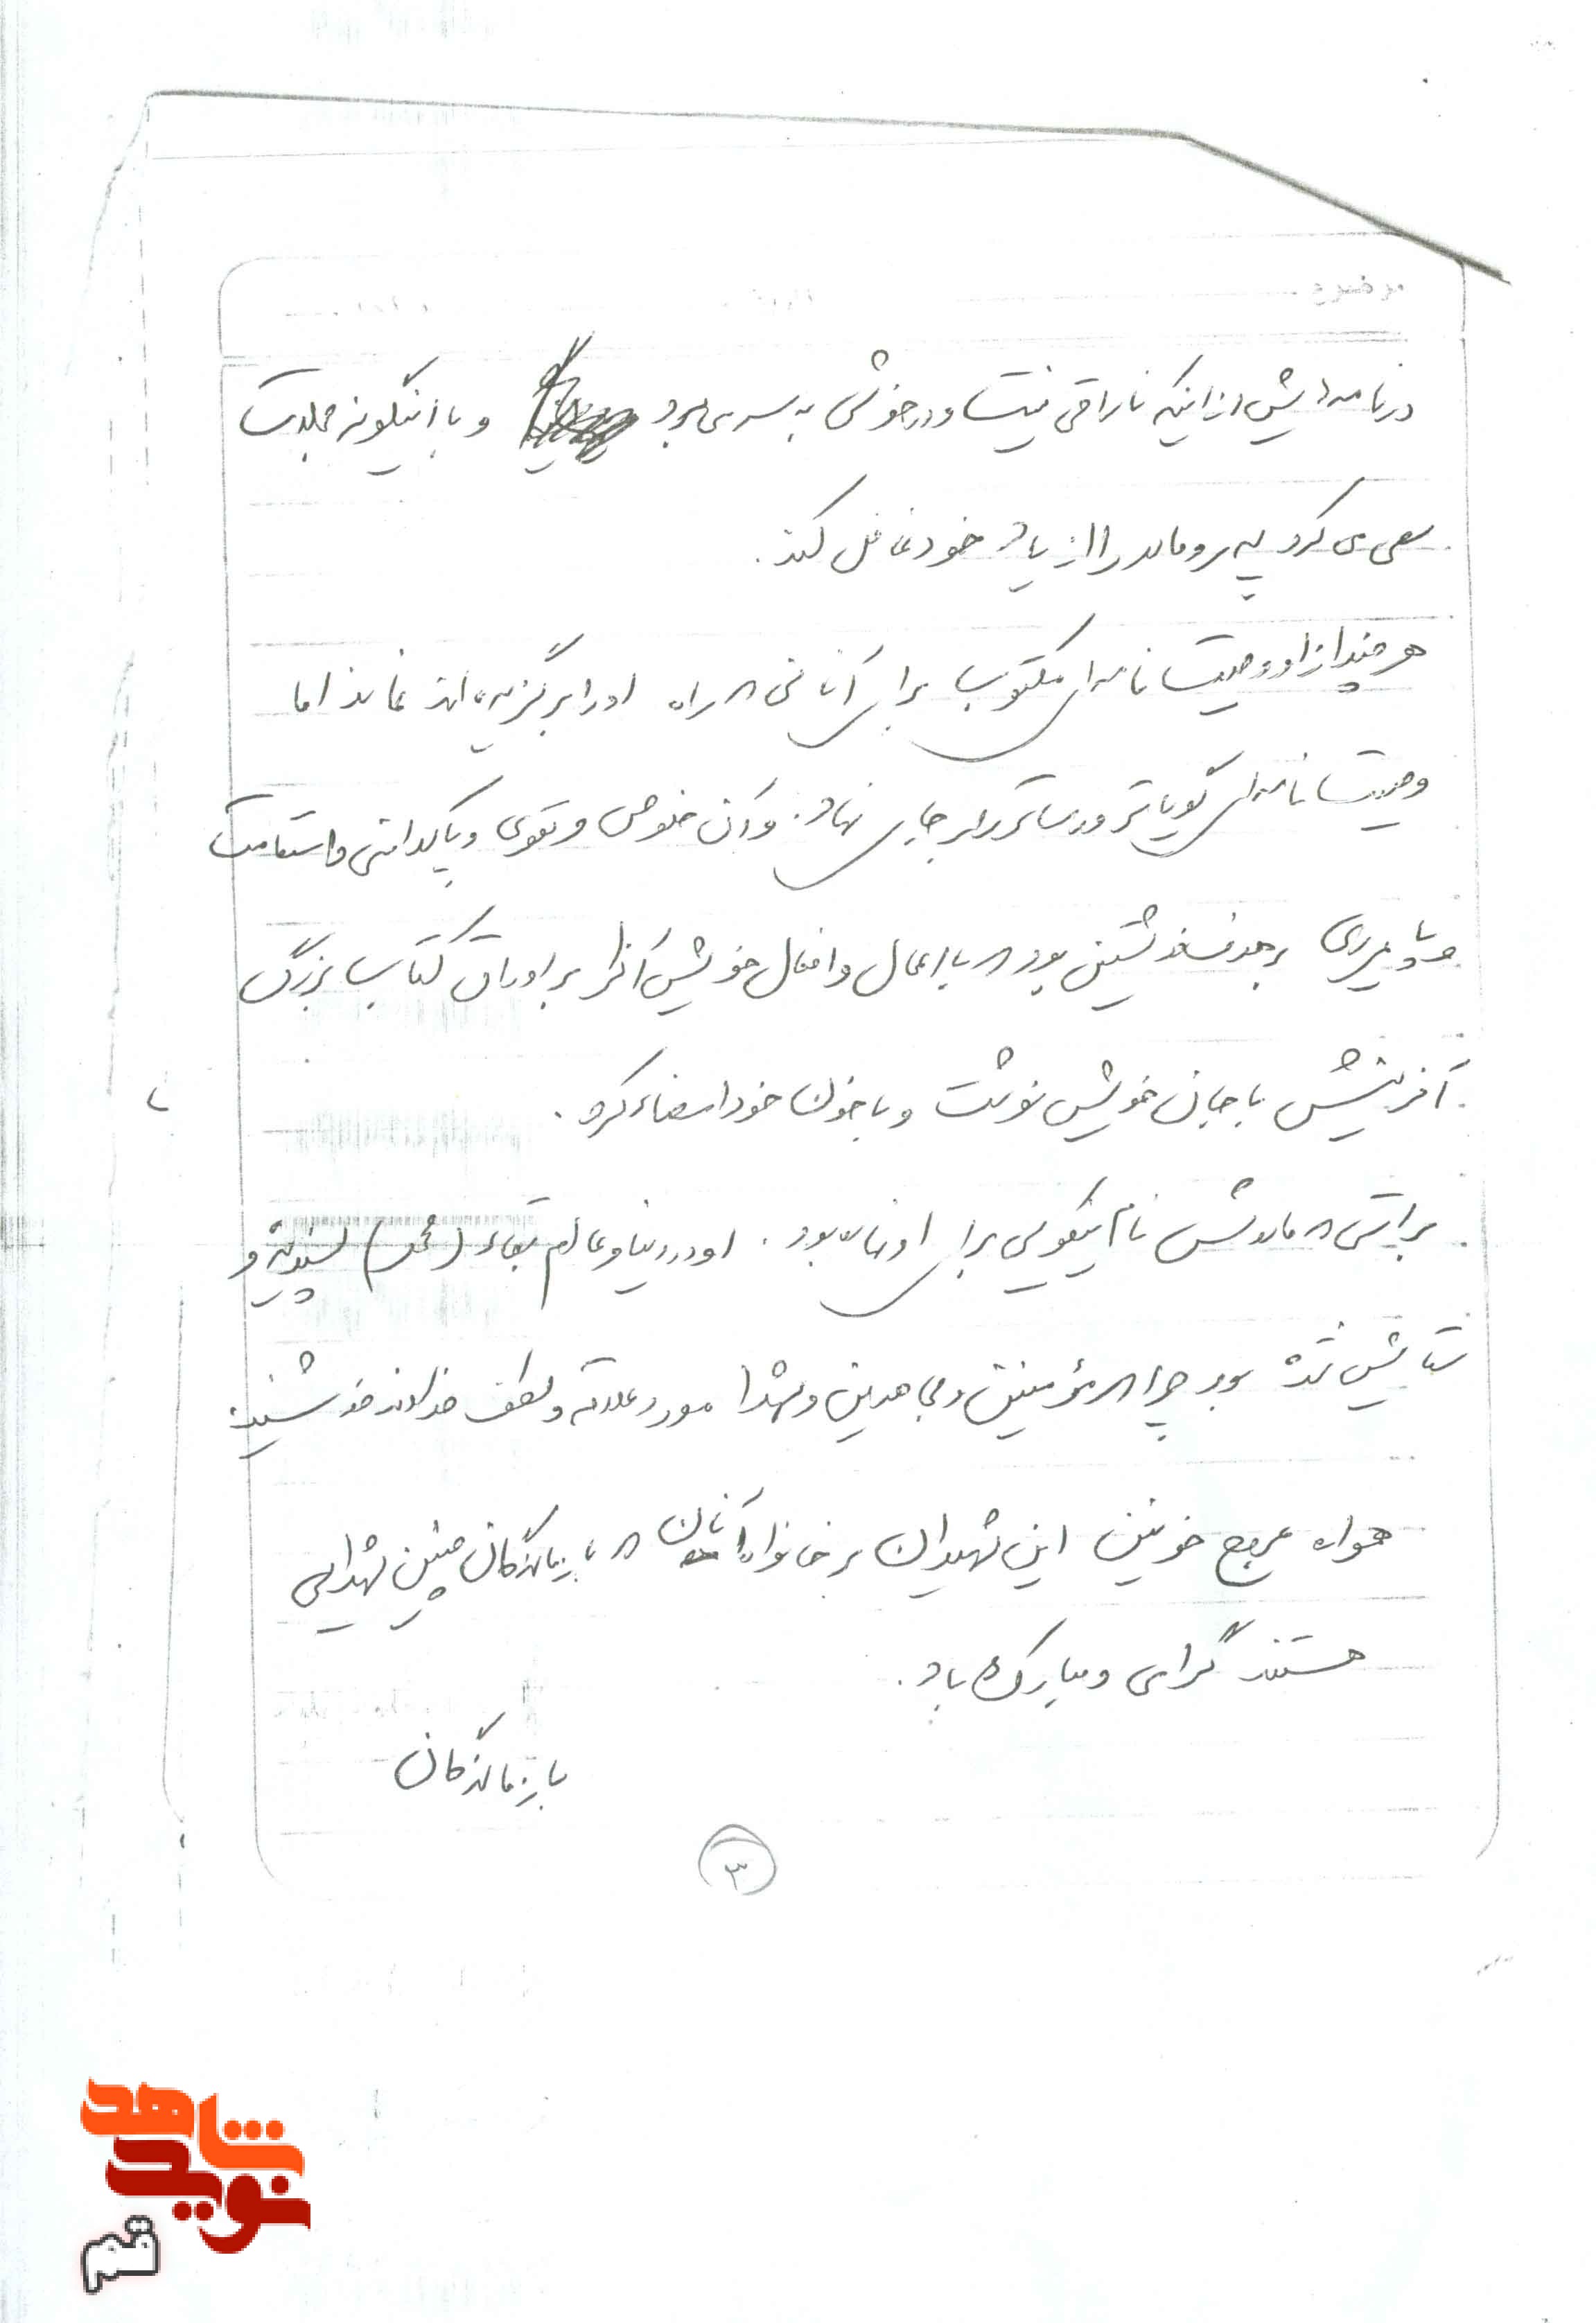 موضوع
در نامه‌هایش از اینکه ناراحتی نیست و در خوشی به سر می‌برد و با اینگونه جملات
سعی می‌کرد پدر و مادر را از یاد خود غافل کند.
هر چند از او وصیت نامه‌ای مکتوب برای آنانی که راه او را برگزیده‌اند نماند اما
وصیت نامه‌ای گویاتر و رساتر بر جای نهاد. و آن خلوص و تقوی و پاکدامنی و استقامت
و پایمردی بر هدف خویش بود که با اعمال و افعال خویش آنرا بر اوراق کتاب بزرگ
آفرینش با جان خویش نوشت و با خون خود امضاء کرد.
براستی که مادرش نام نیکویی برای او نهاده بود. او در دنیا و عالم بقاء (محمد) پسندیده و
ستایش شده بود چرا که مؤمنین و مجاهدین و شهدا مورد علاقه و لطف خداوند خویشند.
همواره عروج خونین این شهیدان بر خانواده آنان که بازماندگان چنین شهدایی
هستند گرامی و مبارک باد.
بازماندگان
۳
شاهد
نوید
قم